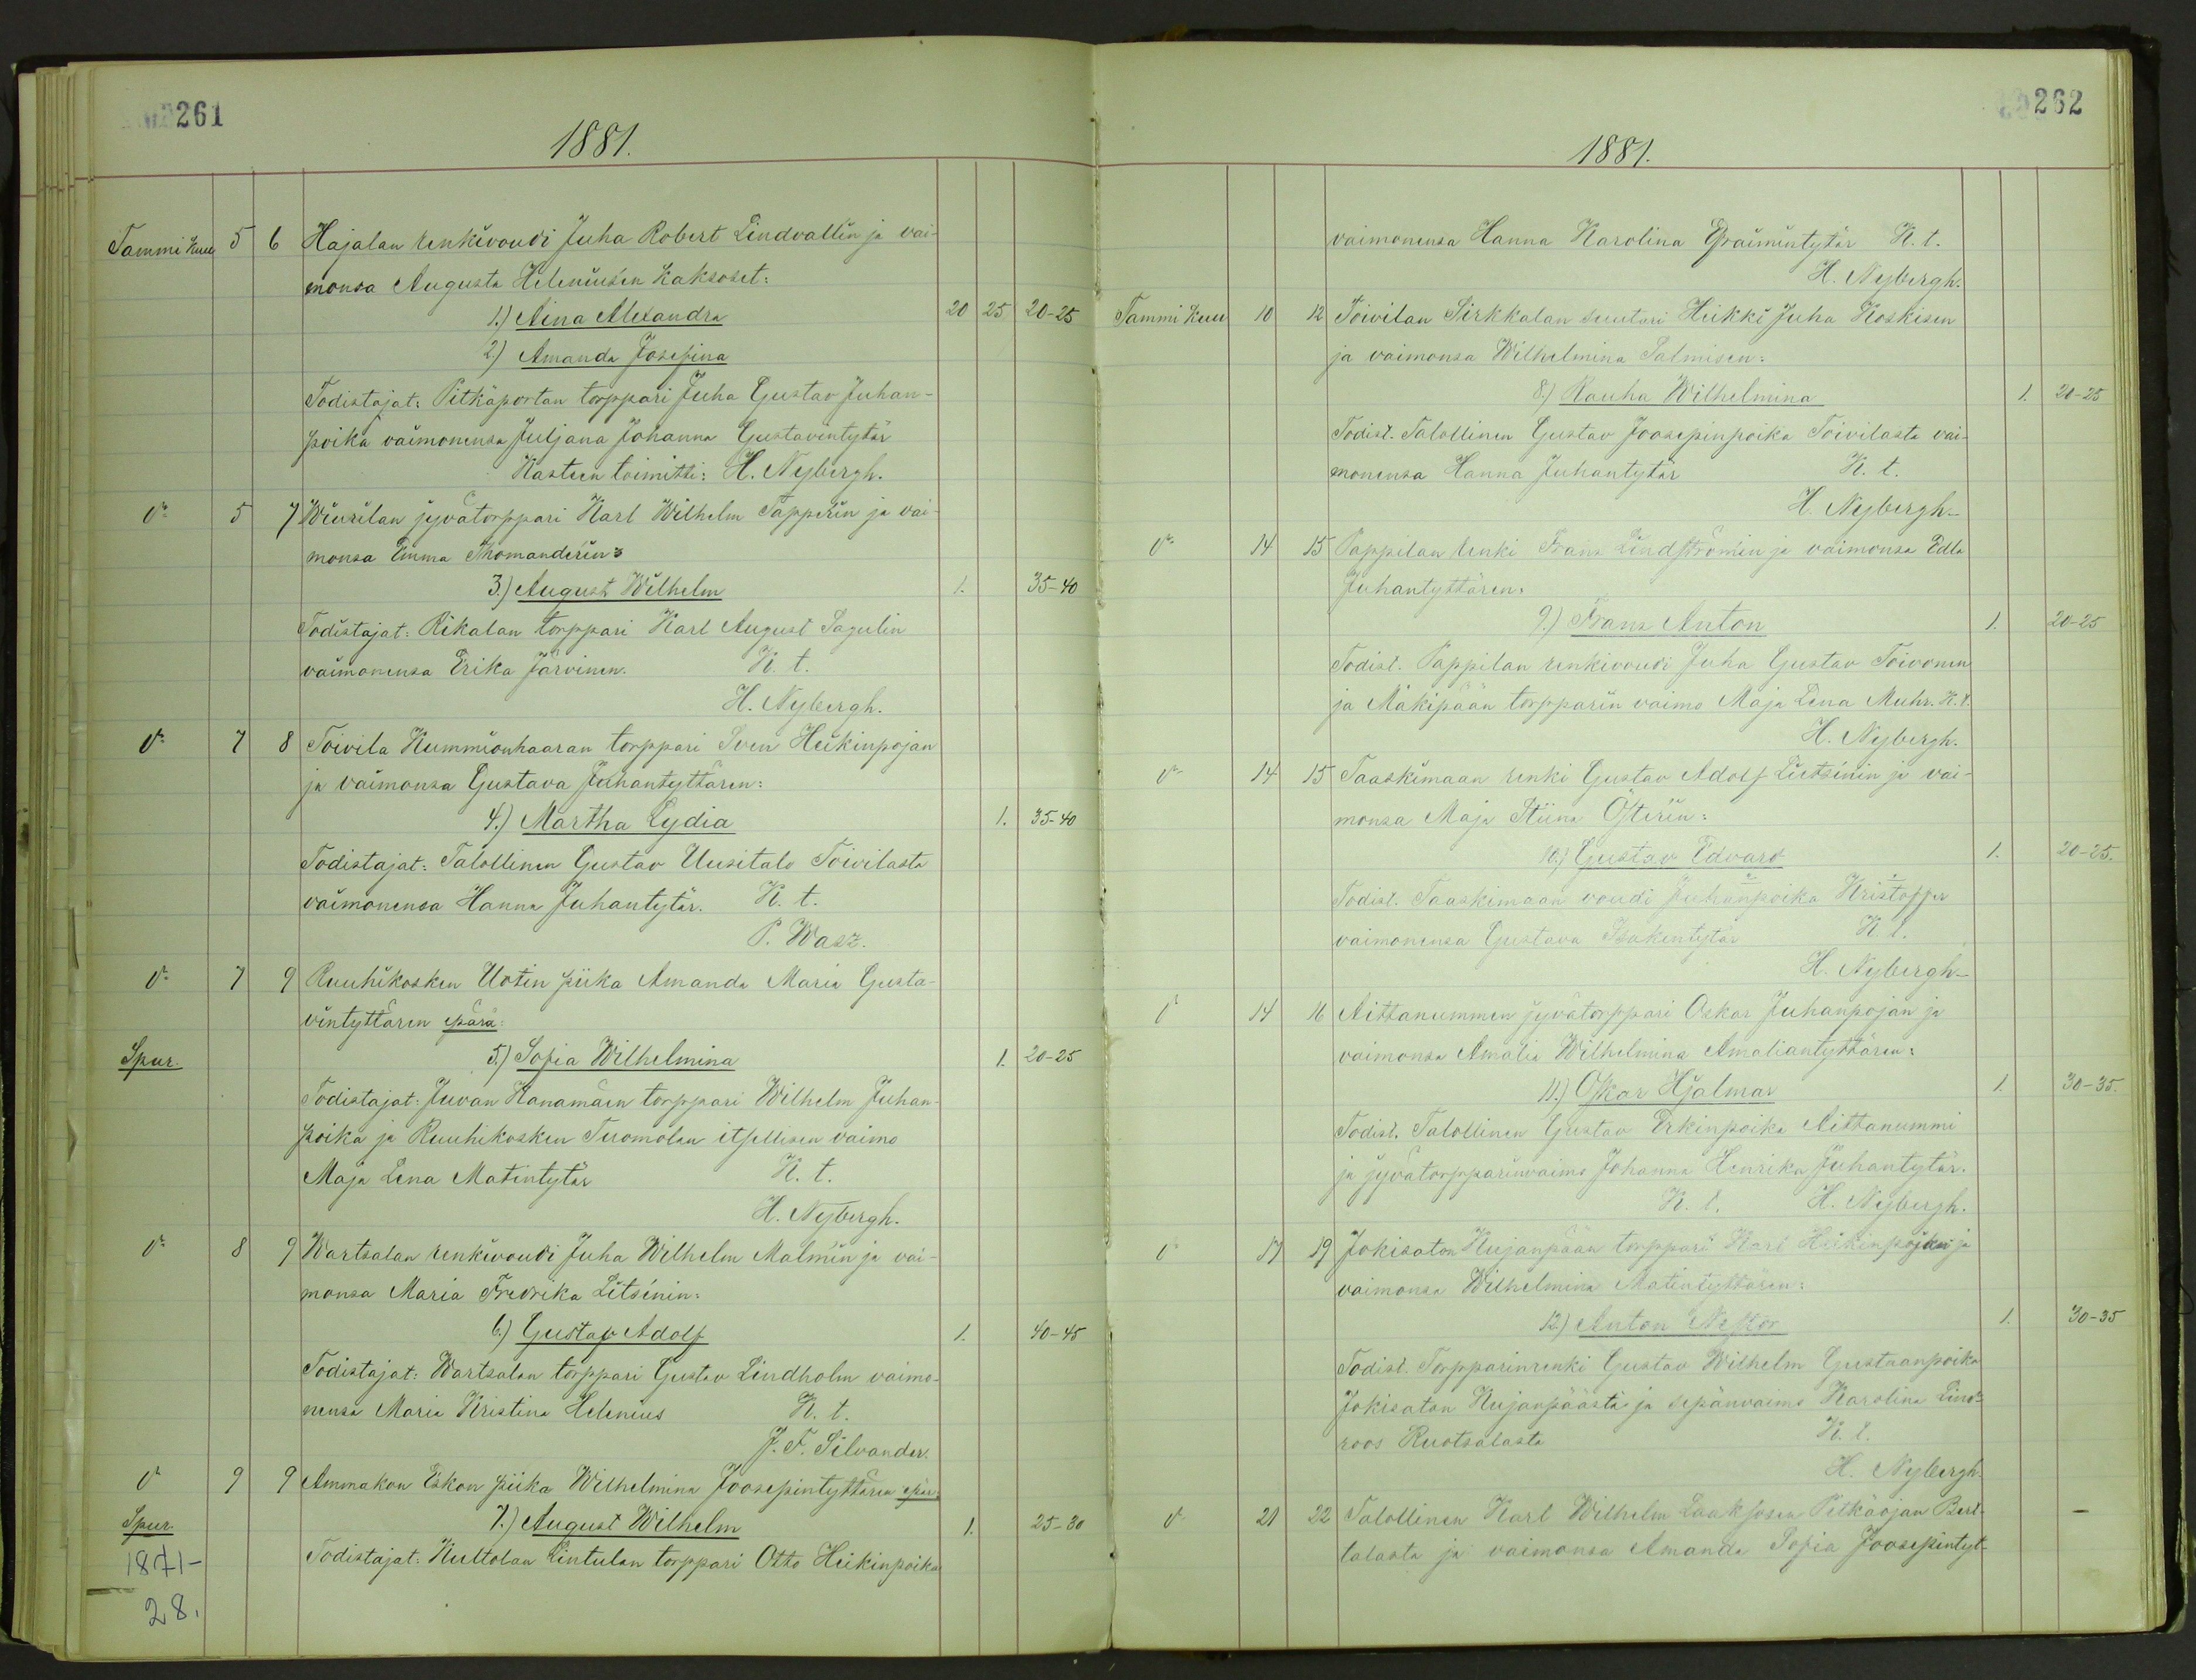 261
1881.
Tammi Kuu 5 6 Hajalan renkivoudi Juha Robert Lindvallin ja vai-
monsa Augusta Heleniusen kaksoset:
1.) Aina Alexandra 20 25 20-25
2.) Amanda Josefina
Todistajat: Pitkäportan torppari Juha Gustav Juhan-
poika vaimonensa Juljana Johanna Gustavintytär
Kasteen toimitti: H. Nybergh.
5 7 Wiurilan jyvätorppari Karl Wilhelm Tapperin ja vai-
monsa Emma Thomanderin:
3.) August Wilhelm 1. 35-40
Todistajat: Rikalan torppari Karl August Sagulin
vaimonensa Erika Järvinen. K. t.
H. Nybergh.
7 8 Toivila Kummionhaaran torppari Sven Heikinpojan
ja vaimonsa Gustava Juhantyttären:
4.) Martha Lydia 1. 35-40
Todistajat: Talollinen Gustav Uusitalo Toivilasta
vaimonensa Hanna Juhantytär. K. t.
P. Wasz.
7 9 Ruuhikosken Uotin piika Amanda Maria Gusta-
vintyttären epärä:
Spur. 5.) Sofia Wilhelmina 1. 20-25
Todistajat: Juvan Kanamäen torppari Wilhelm Juhan-
poika ja Ruuhikosken Tuomolan itsellisen vaimo
Maja Lena Matintytär K. t.
H. Nybergh.
8 9 Wartsalan renkivoudi Juha Wilhelm Malmin ja vai-
monsa Maria Fredrika Litsinin:
6.) Gustav Adolf 1. 40-45
Todistajat: Wartsalan torppari Gustav Lindholm vaimo-
nensa Maria Kristina Helenius K. t.
J. F. Silvander.
9 9 Ammakon Eskon piika Wilhelmina Joosepintyttären epär:
Spur. 7.) August Wilhelm 1. 25-30
Todistajat: Kultolan Lintulan torppari Otto Heikinpoika
1871-
28.
262
1881.
vaimonensa Hanna Karolina Efraimintytär K. t.
H. Nybergh.
Tammi Kuu 10 12 Toivilan Sirkkalan suutari Heikki Juha Koskisen
ja vaimonsa Wilhelmina Salmisen:
8.) Rauha Wilhelmina 1. 20-25
Todist. Talollinen Gustav Joosepinpoika Toivilasta vai-
monensa Hanna Juhantytär K. t.
H. Nybergh
14 15 Pappilan renki Frans Lindströmin ja vaimonsa Edla
Juhantyttären:
9.) Frans Anton 1. 20-25
Todist. Pappilan renkivoudi Juha Gustav Toivonen
ja Mäkipään torpparin vaimo Maja Lena Muhr. K. t.
H. Nybergh.
14 15 Taaskimaan renki Gustav Adolf Lietsinin ja vai-
monsa Maja Stiina Österin:
10.) Gustav Edvard 1. 20-25.
Todist. Taaskimaan voudi Juhanpoika Kristoffer
vaimonensa Gustava Isakintytär K. t.
H. Nybergh
14 16 Aittanummen jyvätorppari Oskar Juhanpojan ja
vaimonsa Amalia Wilhelmina Amaliantyttären:
11.) Oskar Hjalmar 1. 30-35.
Todist. Talollinen Gustav Erkinpoika Aittanummi
ja jyvätorpparinvaimo Johanna Henrika Juhantytär.
K. t. H. Nybergh.
17 19 Jokisaton Kujanpään torppari Karl Heikinpojan ja
vaimonsa Wilhelmina Matintyttären:
12.) Anton Nestor 1. 30-35
Todist. Torpparinrenki Gustav Wilhelm Gustaanpoika
Jokisaton Kujanpäästä ja sepänvaimo Karolina Lind-
roos Ruotsalasta K. t.
H. Nybergh.
21 22 Talollinen Karl Wilhelm Laaksosen Pitkäojan Bert-
talasta ja vaimonsa Amanda Sofia Joosepintyt-